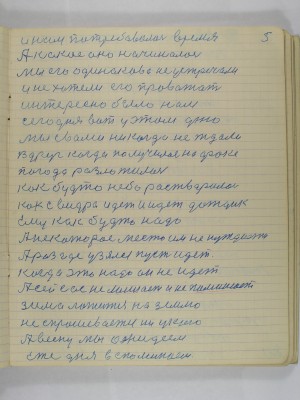 5
и нам потребовалос время
А какое оно начиналос
мы его одинаково не встречали
и не хотели его проважат
интересно было нам
сегодня вот у этом дню
мы с вами никогда не ждали
вдруг когда получился на дроки
погода разложилах
как будто небо растваралос
как с ведра идет и идет дождик
Ему как будто надо
А некоторое место им не нуждаето
А раз где узялся пуст идет
когда это надо он не идет
А сей час не
зима ложится на землю
не спрошевается ни укого
А весну мы ожидаем
Еже дня вспоминаем